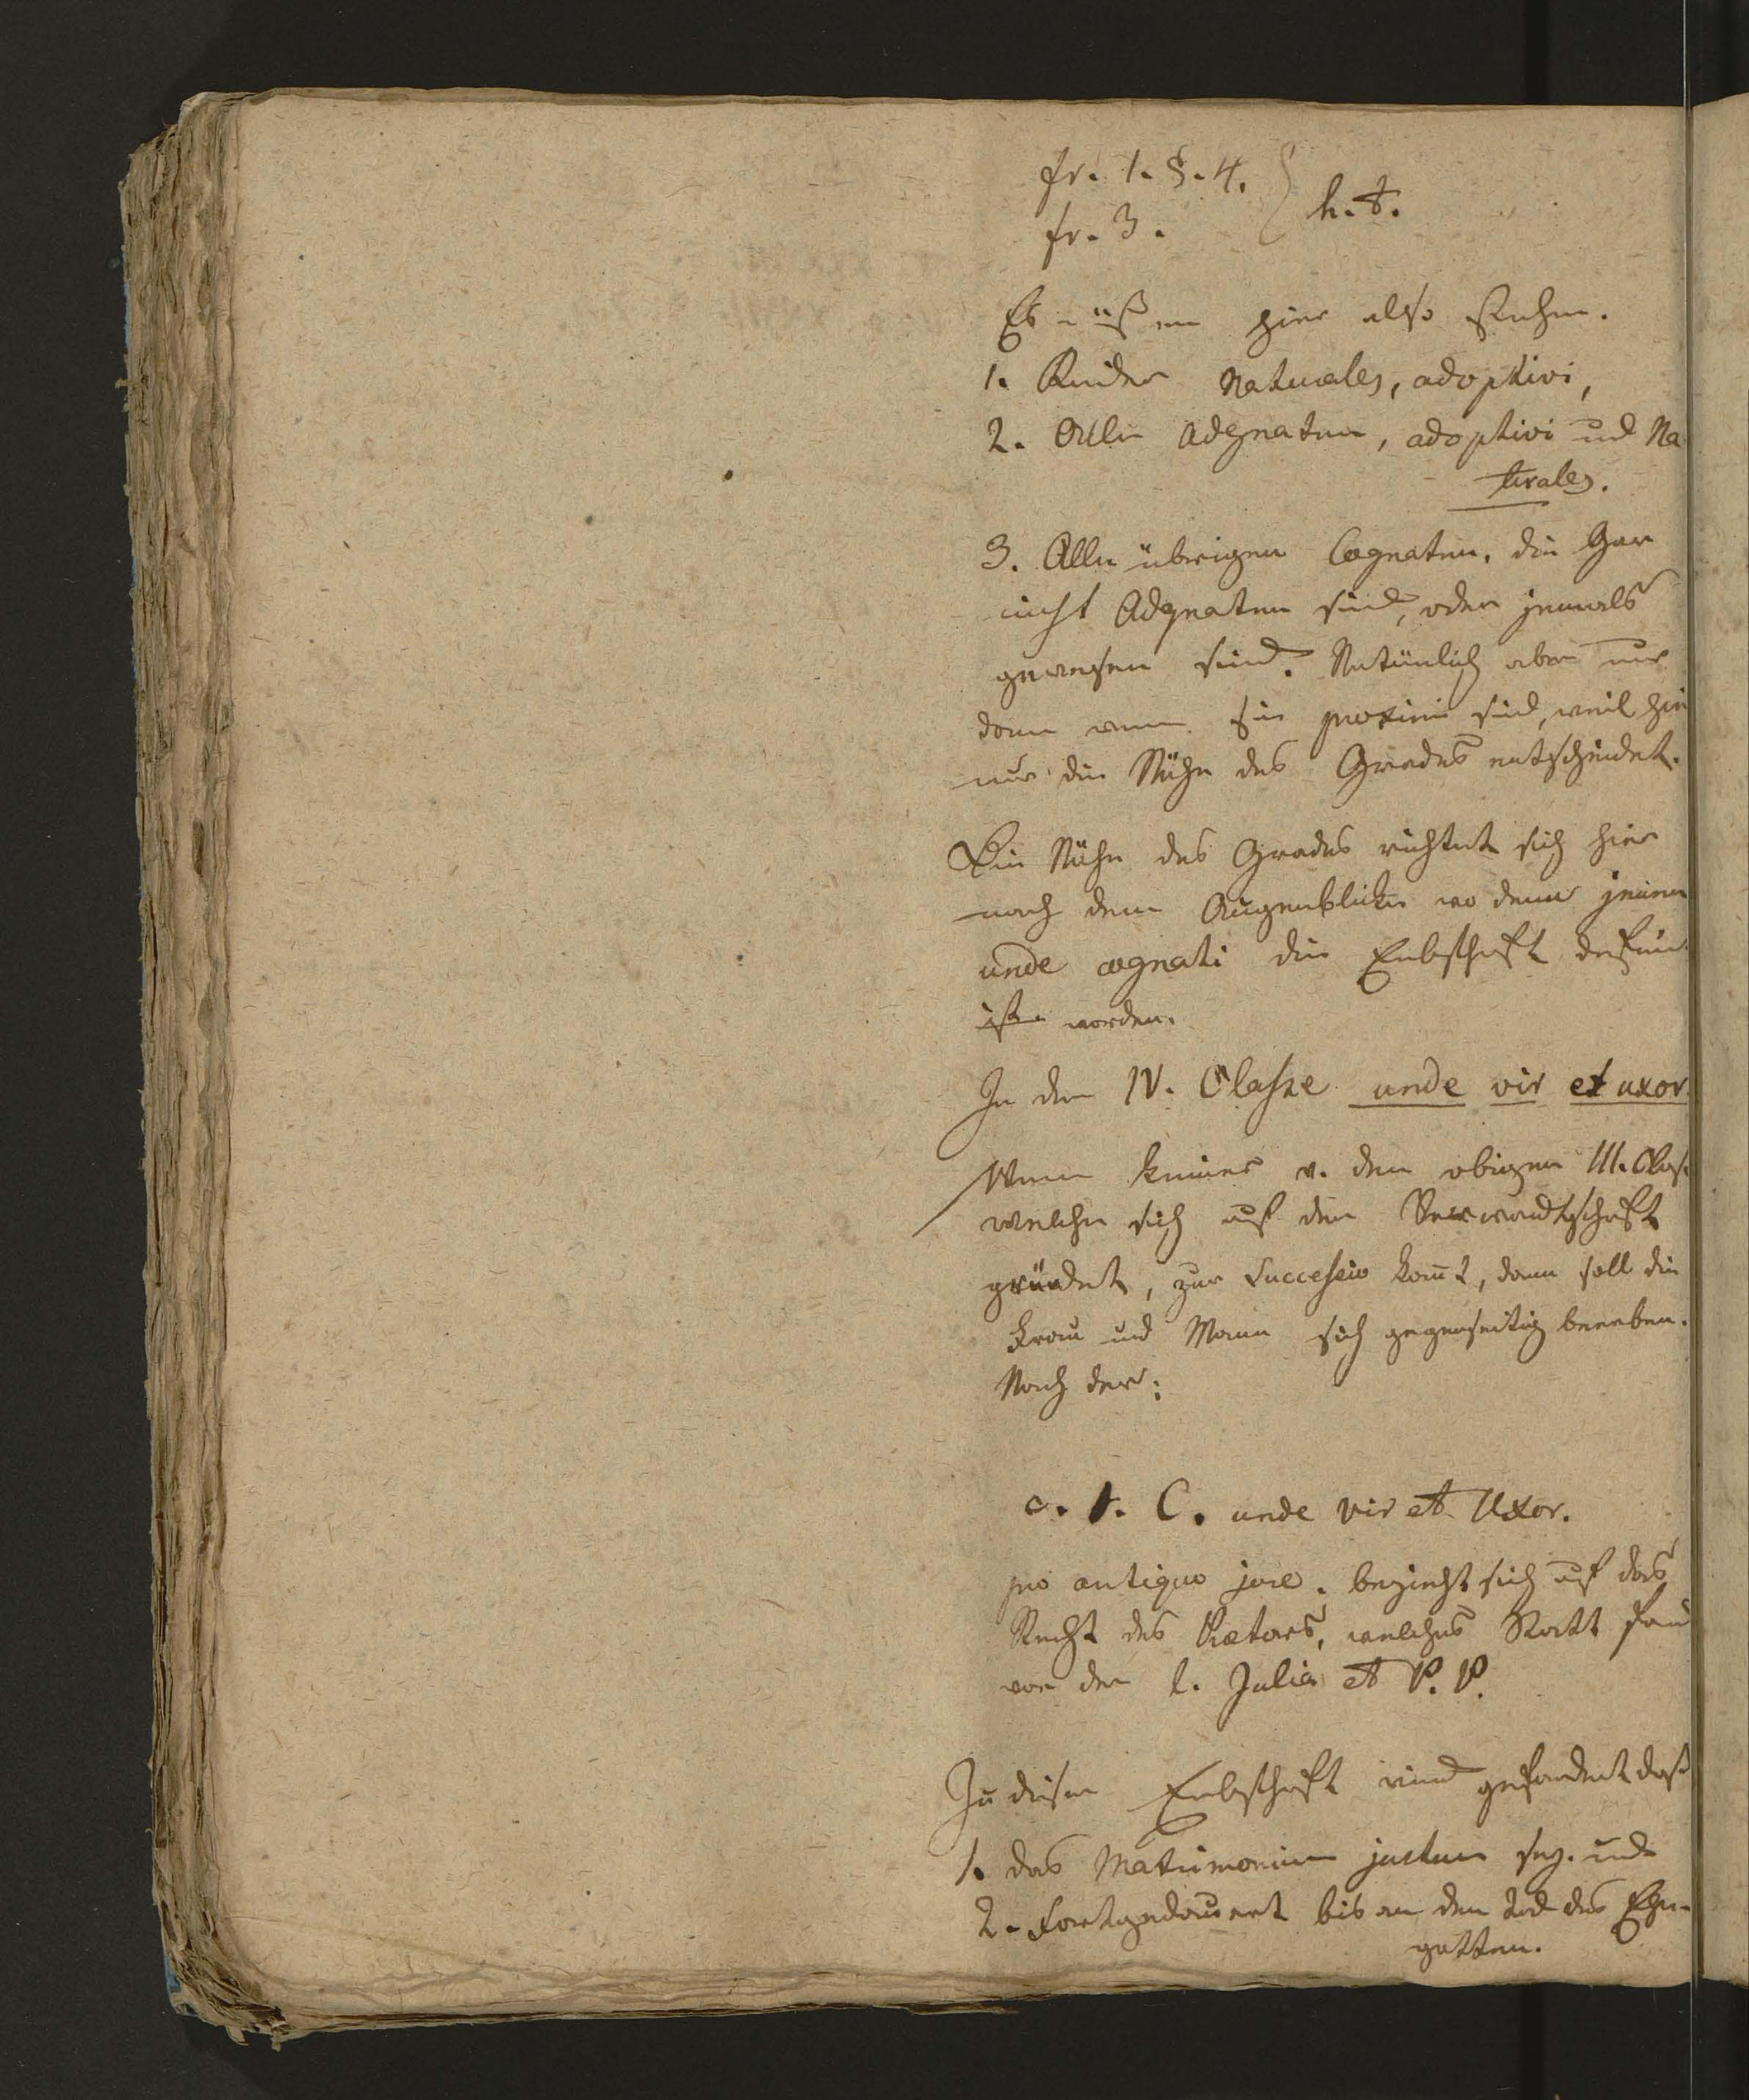 fr. 1. §. 4.
fr. 3.
} h. t.
Es müßen hier also stehen.
1. Kinder Naturales, adoptivi,
2. Alle Adgnaten, adoptivi und Na
turales.
3. Alle übrigen Cognaten, die Gar
nicht Adgnaten sind, oder jemals
gewesen sind. Natürlich aber nur
dann wenn sie proximi sind, weil hie
nur die Nähe des Grades entscheidet.
Die Nähe des Grades richtet sich hier
nach dem Augenblicke wo denn
unde cognati die Erbschaft
ist worden.
In der IV. Classe unde vir et uxor.
Wenn keiner v. den obigen III. Class.
welche sich auf der Verwandtschaft
gründet, zur Successio komt, dann soll die
Frau und Mann sich gegenseitig beerben.
Nach der:
c. 1. C. unde vir et Uxor.
pro antiquo jure. bezieht sich auf das
Recht des Prætors, welches Statt fand
vor der l. Julia et P. P.
Zu dieser Erbschaft wird gefordert daß
1. das Matrimonium justum sey. und
2. Fortgedauert bis an den Tod des Ehe-
gatten.